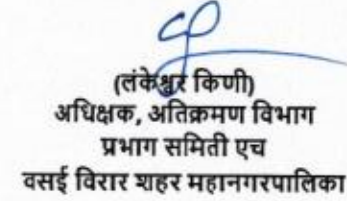 (लंकेश्वर किणी)
अधिक्षक, अतिक्रमण विभाग
प्रभाग समिती एच
वसई विरार शहर महानगरपालिका